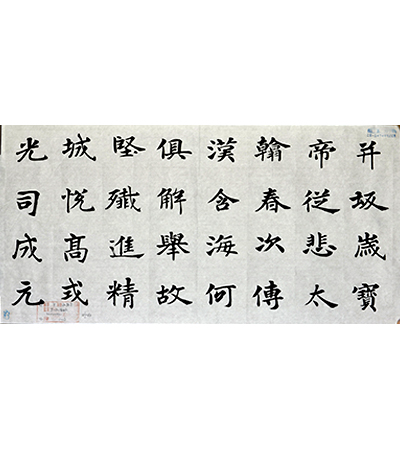 幷坂歲寶
帝從悲太
翰春次傳
漢含海何
俱解舉故
堅殲進精
城悅髙或
光司成元